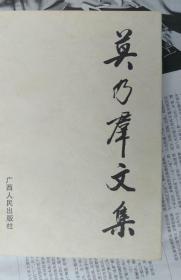 莫乃群文集
广西人民出版社